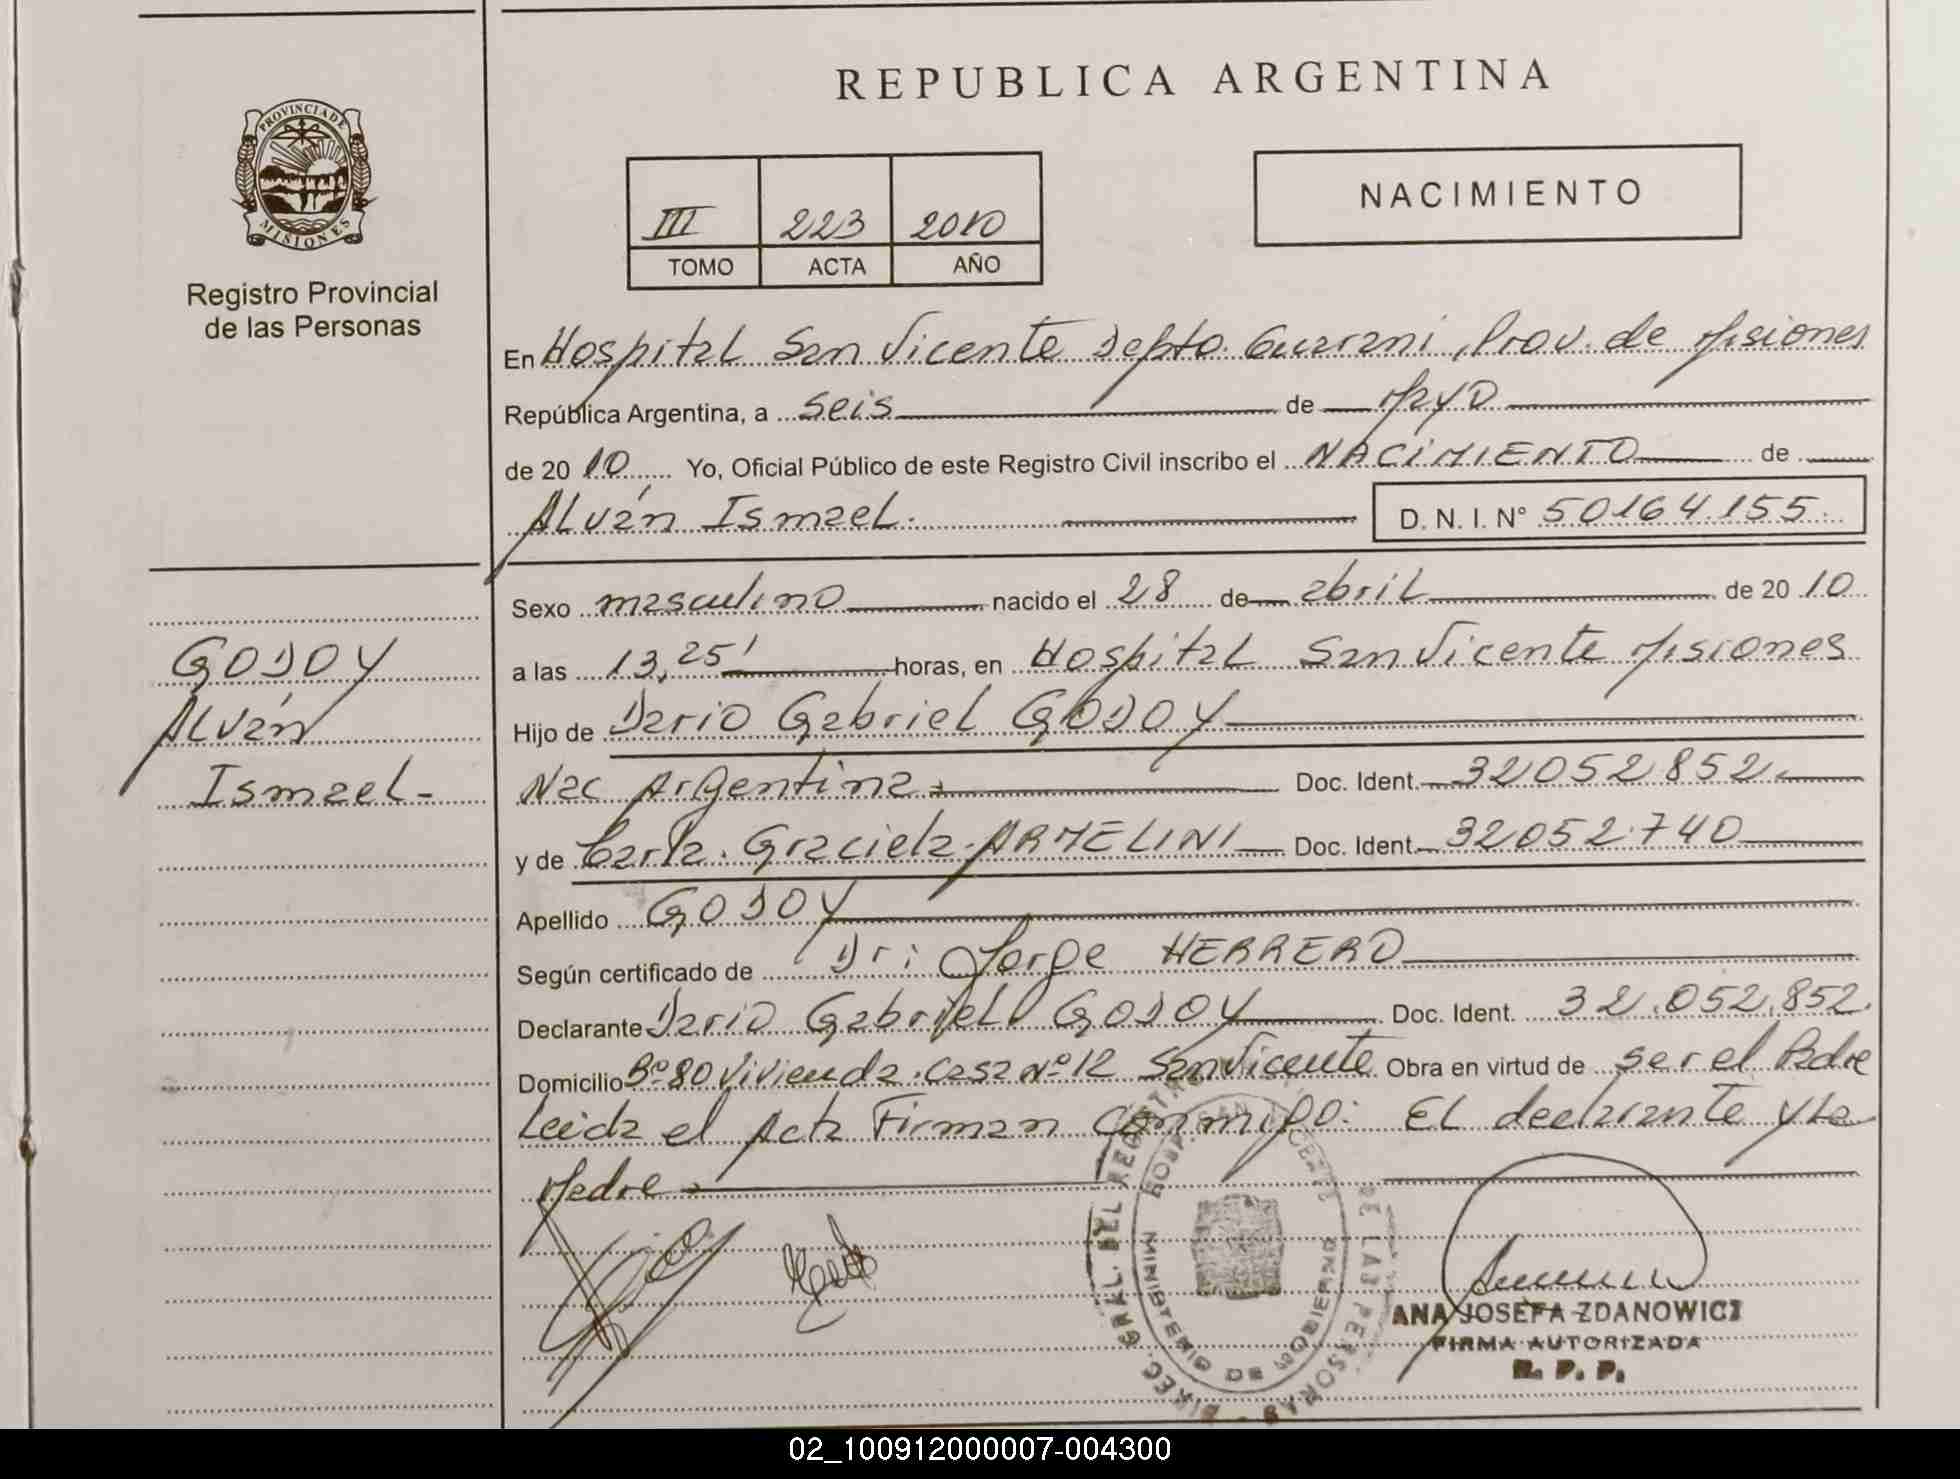 REPUBLICA ARGENTINA
PROVINCIA DE
MISIONES
Registro Provincial
de las Personas
III 223 2010
TOMO ACTA AÑO
NACIMIENTO
En Hospital San Vicente Depto. Guarani, Prov. de Misiones
República Argentina, a seis de Mayo
de 20 10 Yo, Oficial Público de este Registro Civil inscribo el NACIMIENTO de
Alván Ismael. D. N. I. N° 50164.155
Sexo masculino nacido el 28 de abril de 20 10
a las 13,25' horas, en Hospital San Vicente Misiones
Hijo de Dario Gabriel GODOY
Nac Argentina. Doc. Ident. 32052852.
y de Carla. Graciela. ARMELINI Doc. Ident. 32052.740
Apellido GODOY
Según certificado de Dr: Jorge HERRERO
Declarante Dario Gabriel GODOY Doc. Ident. 32.052.852.
Domicilio Bº 80 Vivienda. Casa Nº 12 San Vicente Obra en virtud de ser el Padre
Leida el Acta Firman Conmigo: El declarante y la
Madre
GODOY
Alván
Ismael-
HOSP. SAN VICENTE
MINISTERIO DE GOBIERNO
ANA JOSEFA ZDANOWICZ
FIRMA AUTORIZADA
R. P. P.
02_100912000007-004300